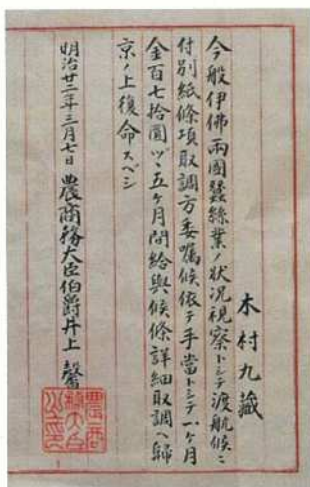 木村九蔵
今般伊佛両國蠶絲業ノ状況視察トシテ渡航候ニ
付別紙條項取調方委嘱候依テ手當トシテ一ヶ月
金百七拾圓ヅヽ五ヶ月間給與候條詳細取調ヘ歸
京ノ上復命スベシ
明治廿二年三月七日 農商務大臣伯爵井上馨
農商務大臣之印